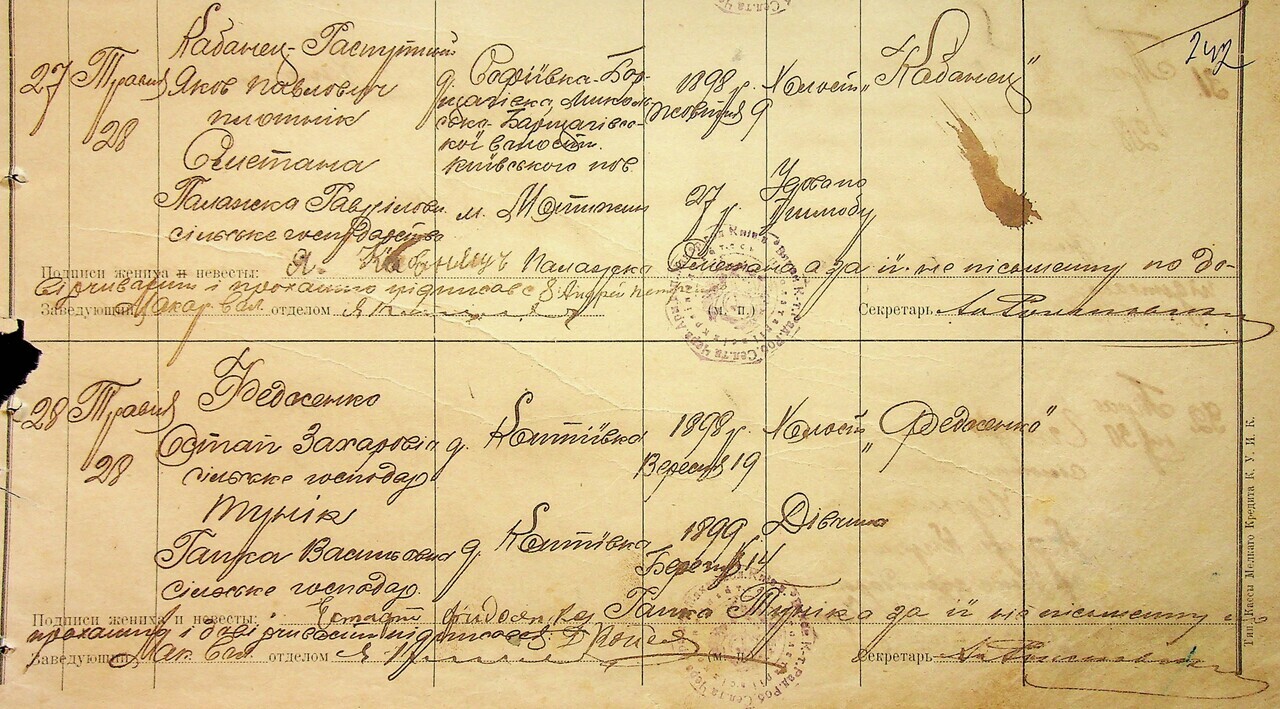 242
27 Травня 28
Кабанец-Распутний
Яков Павлович
плотнік
д. Софіївка-Бор-
щагівка, Миколь-
сько-Борщагівсь-
кої волости
Київського пов.
1898 р.
Жовтня 9
Холост
„Кабанец"
Сметана
Паланска Гаврілови
сільське господарство
м. Мотижин
27 р.
Подписи жениха и невесты: Я. Кабанец Паланска Сметана а за її не пісьменну по до-
вірчивости і проханню підписавс Андрей
Заведующий Макар Вол. отделом (м. п.) Секретарь
28 Травня 28
Федосенко
Остап Захарович
сільське господар.
д. Коптіївка
1898 р.
Вересня 19
Холост
„Федосенко"
Тунік
Гапка Васильовна
сільське господар.
д. Коптіївка
1899
Березня 14
Дівчина
Подписи жениха и невесты: Гапка Туніка за її не пісьменну
проханню і довірчивости підписавсь
Заведующий Мак. Вол. отделом (м. п.) Секретарь
Тип. Кассы Мелкаго Кредита К. У. И. К.